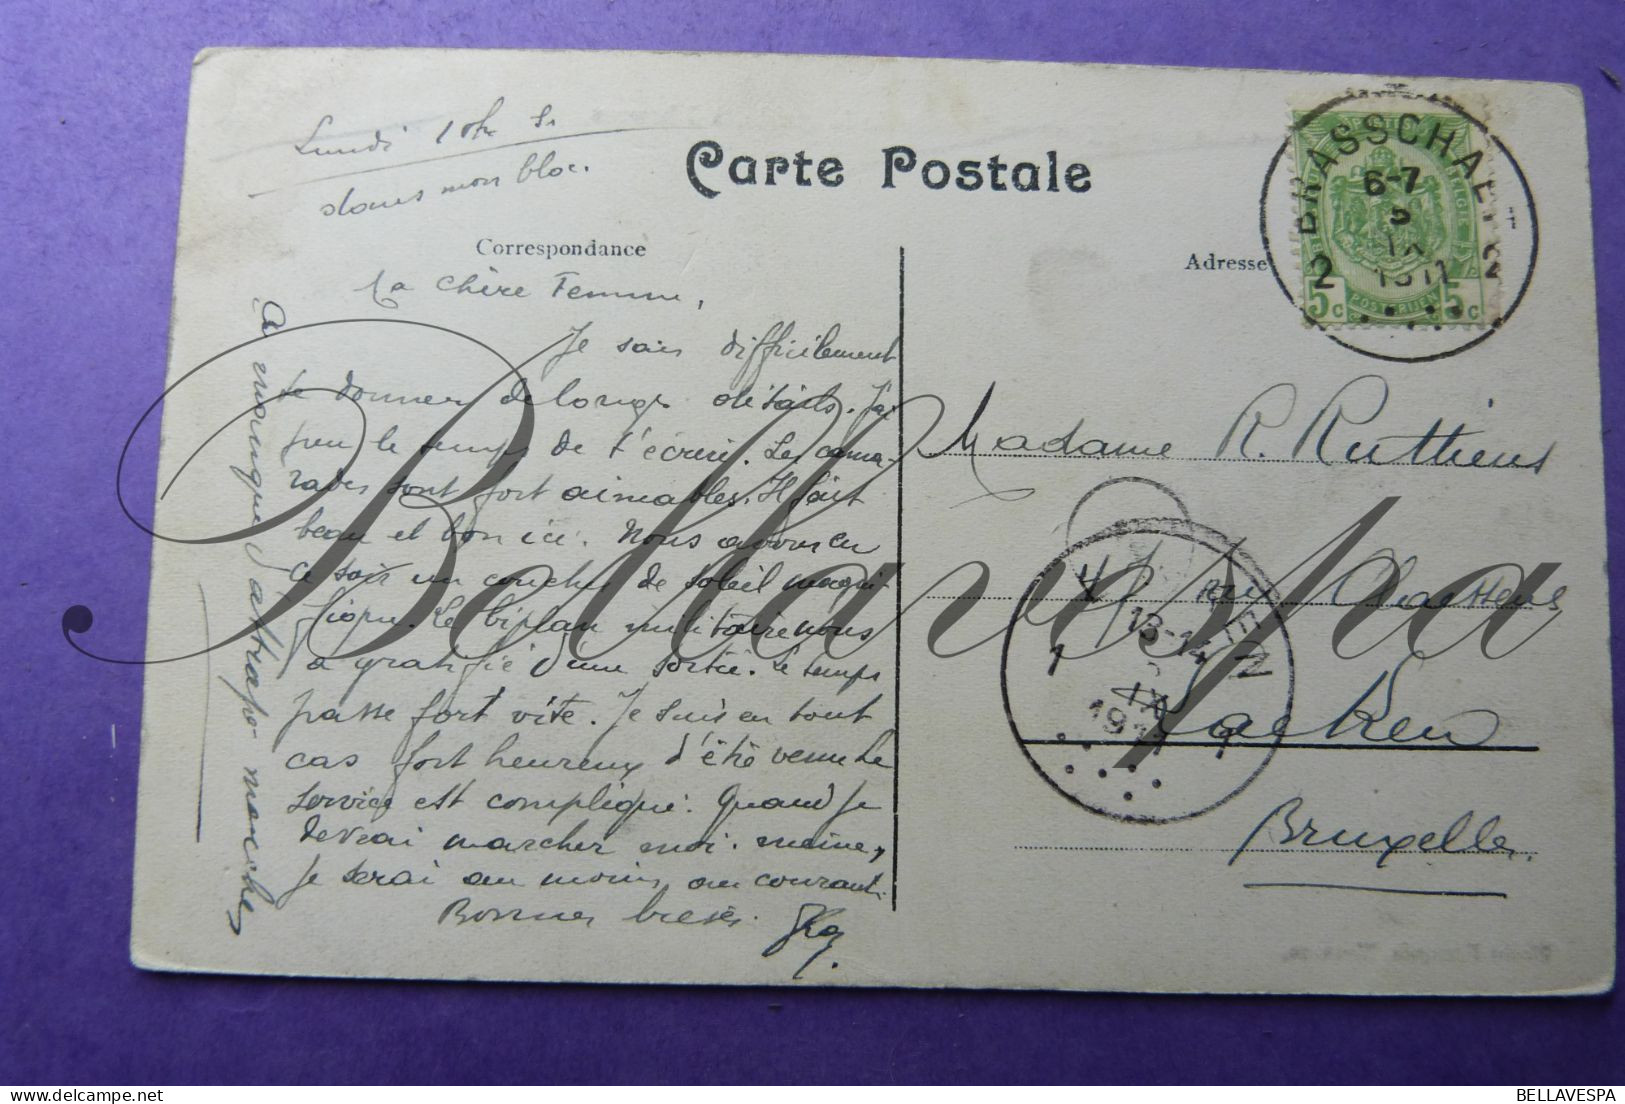 Lundi 10h S.
dans mon bloc.
Carte Postale
Correspondance
Adresse
BRASSCHAET
6-7
5
IX
1911
2 2
5c POSTERIJEN 5c
Ma chère Femme,
Je sais difficilement
te donner de longs détails. J'ai
peu le temps de t'écrire. Les cama-
rades sont fort aimables. Il fait
beau et bon ici. Nous avons eu
ce soir un coucher de soleil magni-
fique. Le biplan militaire nous
a gratifié d'une sortie. Le temps
passe fort vite. Je suis en tout
cas fort heureux d'été venu le
service est compliqué. Quand je
devrai marcher moi-même,
je serai au moins au courant.
Bonnes bises.
a manque d'attrape-mouches
Madame R. Ruthiens
Laeken
Bruxelles.
13-14
IX
1911
1 1
Bellavespa
BELLAVESPA